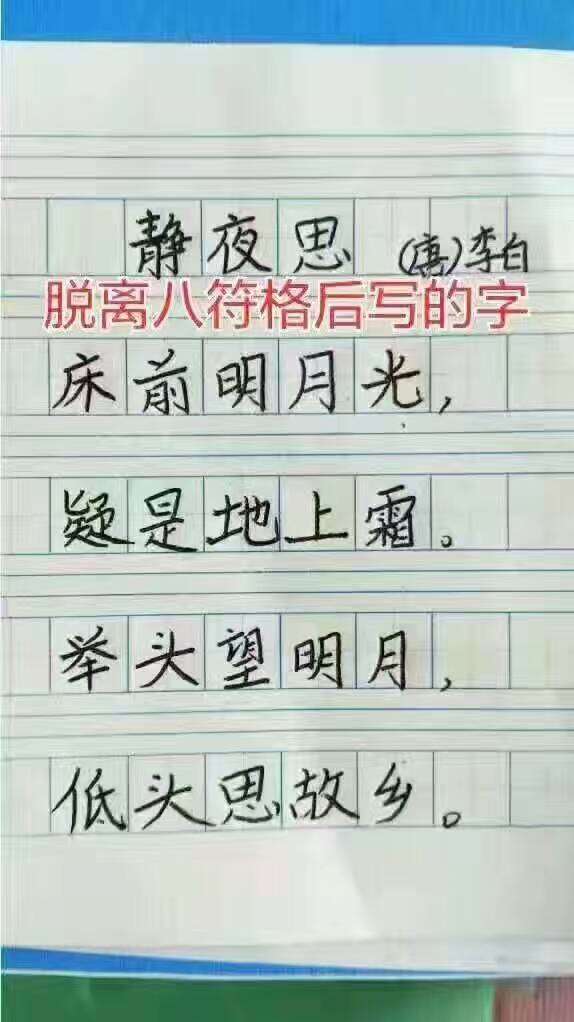 静夜思 (唐)李白
脱离八符格后写的字
床前明月光，
疑是地上霜。
举头望明月，
低头思故乡。